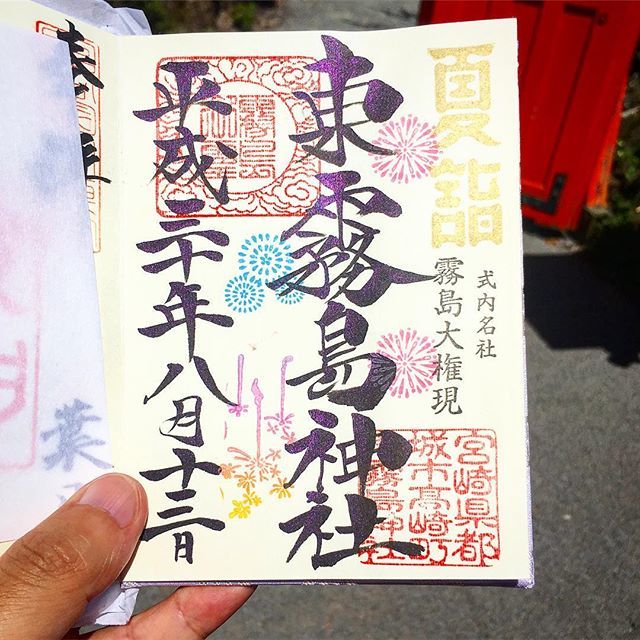 夏詣
式内名社
霧島大権現
宮崎県都
城市高崎町
東霧島神社
東霧島神社
平成三十年八月十三日
葉